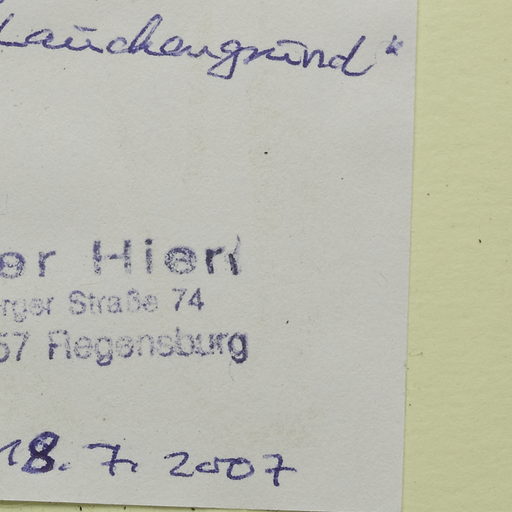 Lauchengrund"
er Hierl
rger Straße 74
57 Regensburg
18. 7. 2007